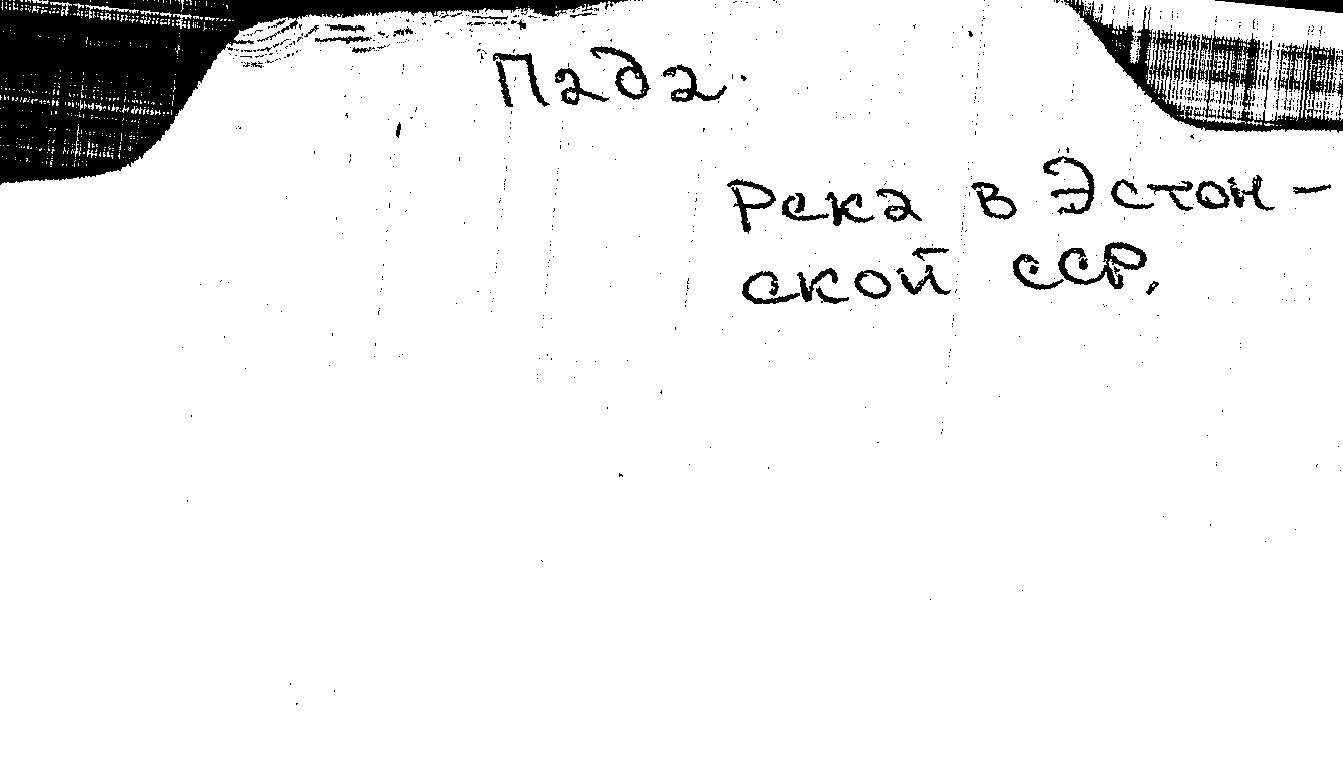 Пада.
Река в Эстон-
ской ССР.